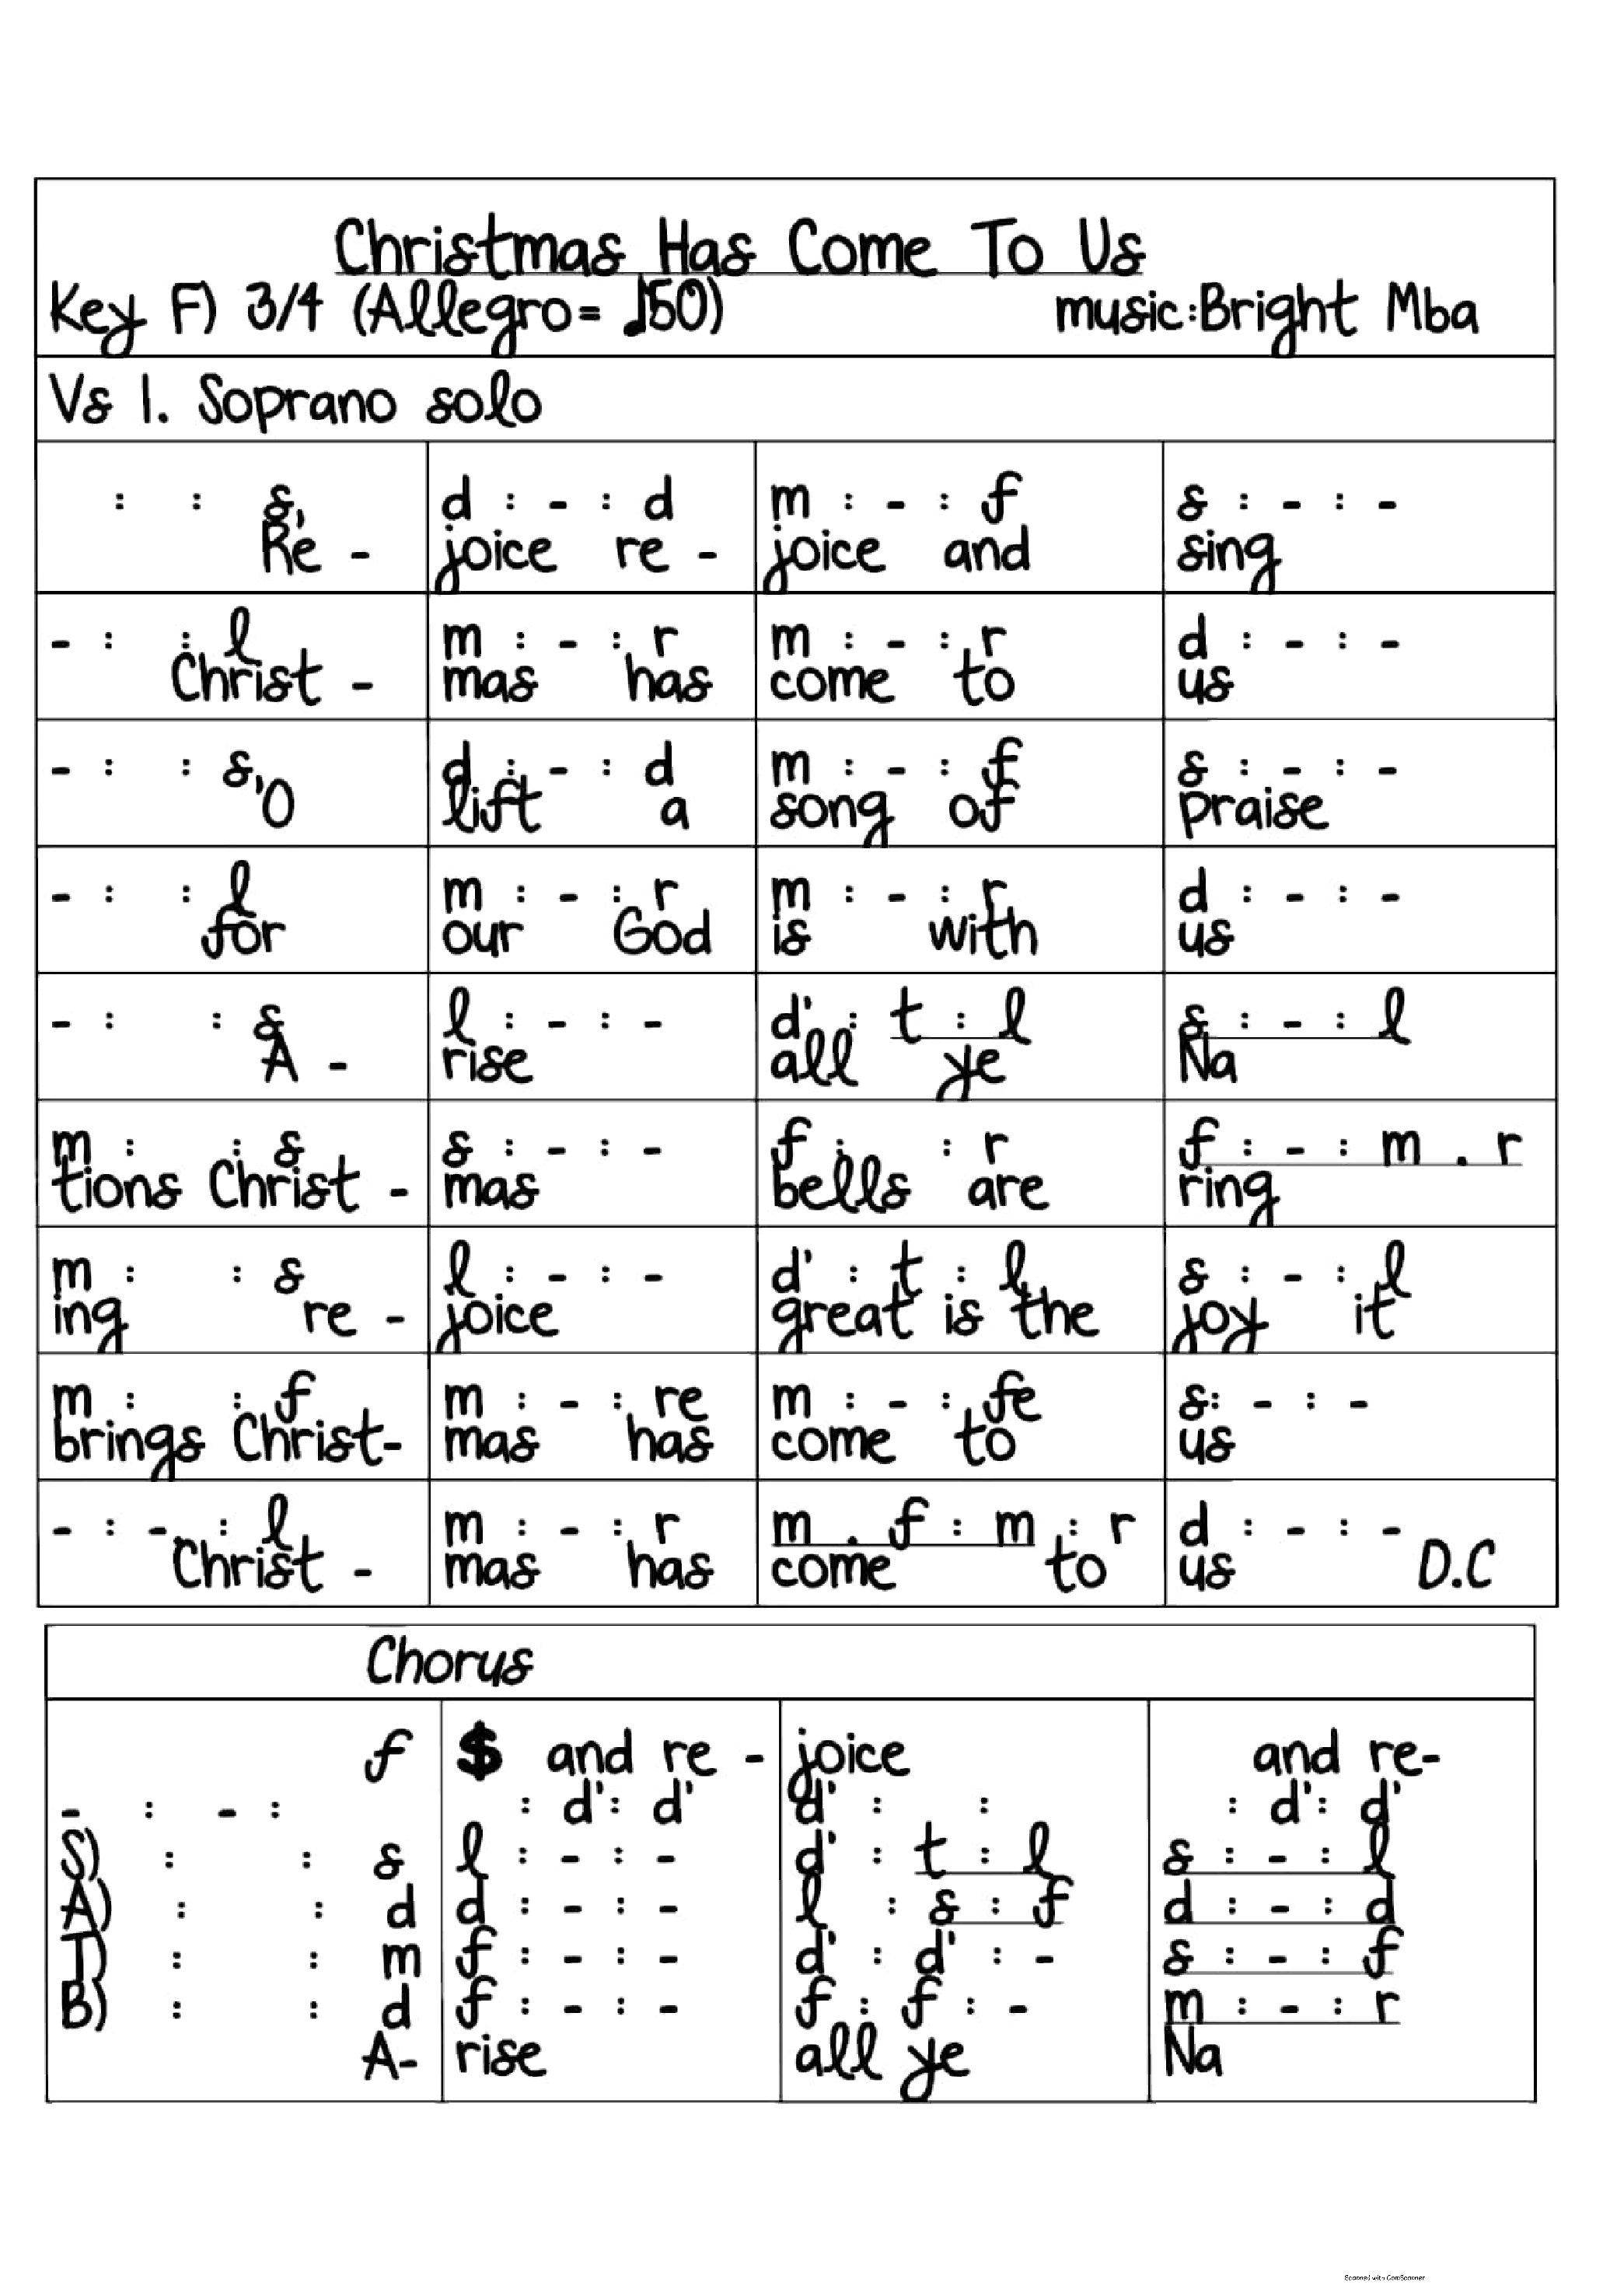 Christmas Has Come To Us
Key F) 3/4 (Allegro= ♩150) music:Bright Mba
Vs 1. Soprano solo
: : s, d : - : d m : - : f s : - : -
Re - joice re - joice and sing
- : : l m : - : r m : - : r d : - : -
Christ - mas has come to us
- : : s, d : - : d m : - : f s : - : -
O lift a song of praise
- : : l m : - : r m : - : r d : - : -
for our God is with us
- : : s l : - : - d' : t : l s : - : l
A - rise all ye Na
m : : s s : - : - f : : r f : - : m . r
tions Christ - mas bells are ring
m : : s l : - : - d' : t : l s : - : l
ing re - joice great is the joy it
m : : f m : - : re m : - : fe s: - : -
brings Christ- mas has come to us
- : - : l m : - : r m . f : m : r d : - : -
Christ - mas has come to us D.C
Chorus
f $ and re - joice and re-
- : - : : d' : d' d' : : : d' : d'
S) : : s l : - : - d' : t : l s : - : l
A) : : d d : - : - l : s : f d : - : d
T) : : m f : - : - d' : d' : - s : - : f
B) : : d f : - : - f : f : - m : - : r
A- rise all ye Na
Scanned with CamScanner